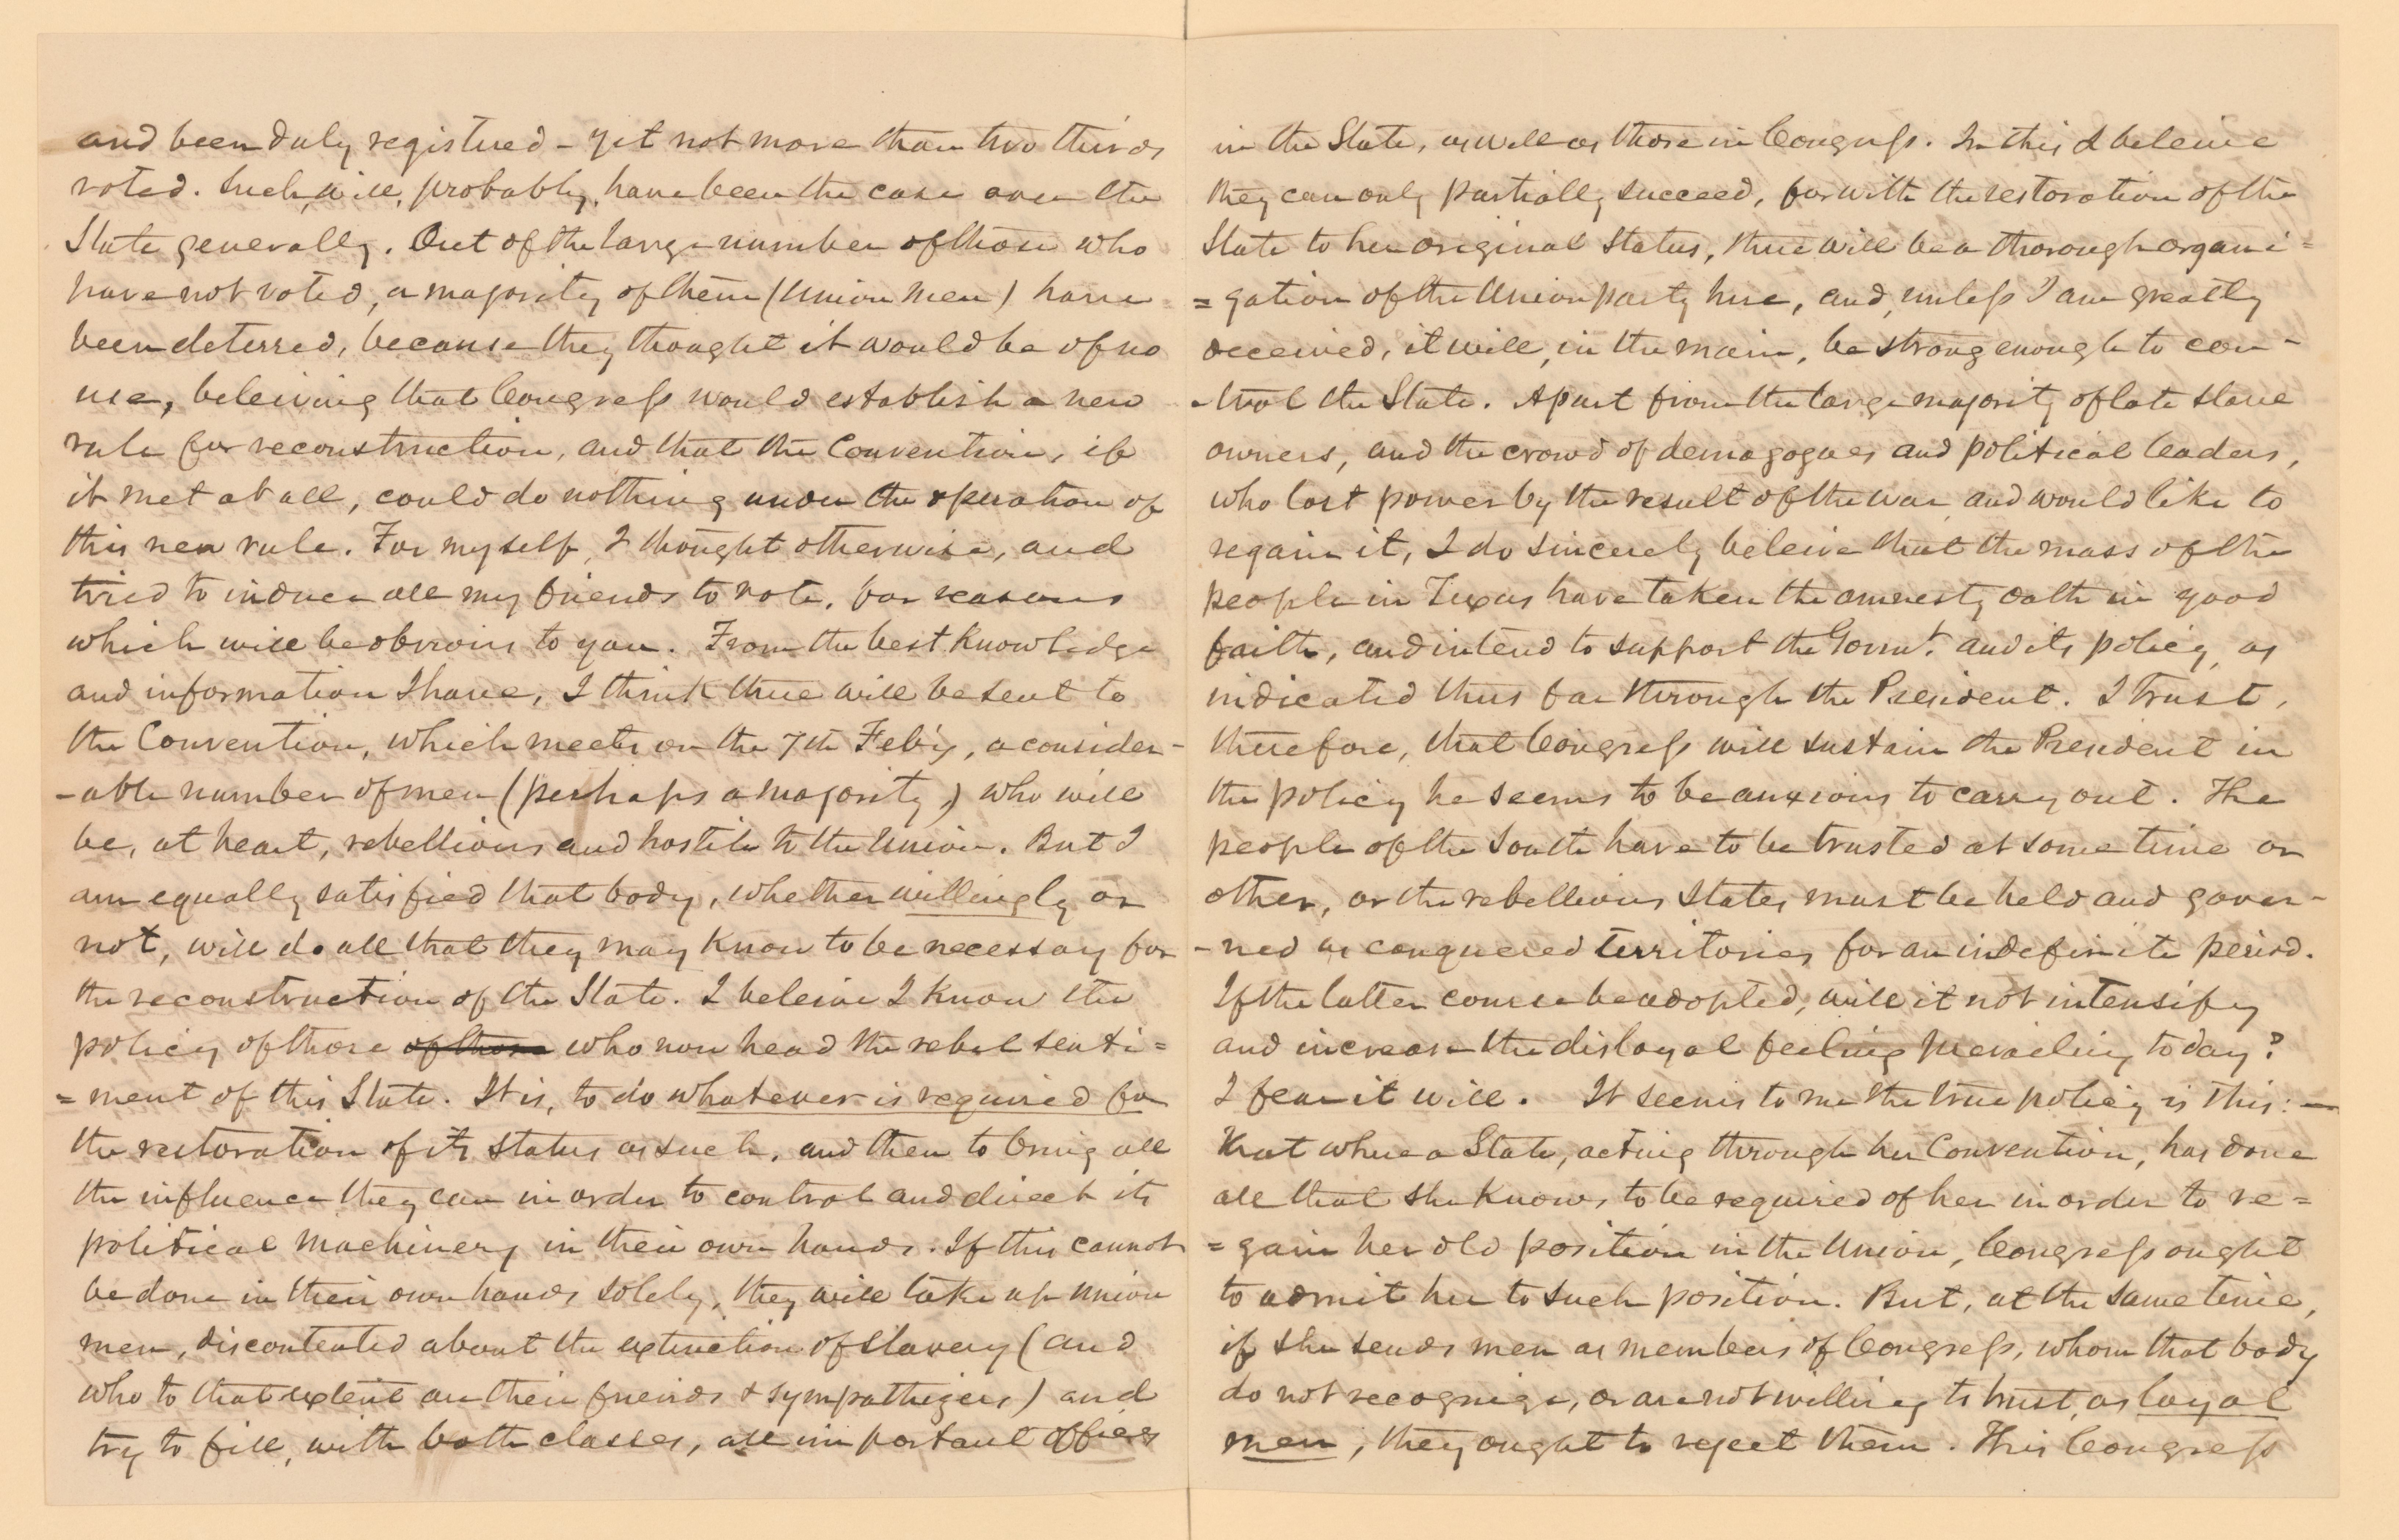 and been duly registered - yet not more than two thirds
voted. Such, will, probably, have been the case over the
State generally. Out of the large number of those who
have not voted, a majority of them (Union men) have
been deterred, because they thought it would be of no
use, beleiving that Congress would establish a new
rule for reconstruction, and that the Convention, if
it met at all, could do nothing under the operation of
this new rule. For myself, I thought otherwise, and
tried to induce all my friends to vote, for reasons
which will be obvious to you. From the best knowledge
and information I have, I think there will be sent to
the Convention, which meets on the 7th Feb'y, a consider-
-able number of men (perhaps a majority,) who will
be, at heart, rebellious and hostile to the Union. But I
am equally satisfied that body, whether willingly or
not, will do all that they may know to be necessary for
the reconstruction of the State. I beleive I know the
policy of those of those who now head the rebel senti=
=ment of this State. It is, to do whatever is required for
the restoration of its status as such, and then to bring all
the influence they can in order to control and direct its
political machinery in their own hands. If this cannot
be done in their own hands solely, they will take up Union
men, discontented about the extinction of slavery (and
who to that extent are their friends & sympathizers) and
try to fill, with both classes, all important offices
in the State, as well as those in Congress. In this I beleive
they can only partially succeed, for with the restoration of the
State to her original status, there will be a thorough organi=
=zation of the Union party here, and, unless I am greatly
deceived, it will, in the main, be strong enough to con-
-trol the State. Apart from the large majority of late slave
owners, and the crowd of demagogues and political leaders,
who lost power by the result of the war and would like to
regain it, I do sincerely beleive that the mass of the
people in Texas have taken the amnesty oath in good
faith, and intend to support the Govm't. and its policy, as
indicated thus far through the President. I trust,
therefore, that Congress will sustain the President in
the policy he seems to be anxious to carry out. The
people of the South have to be trusted at some time or
other, or the rebellious States must be held and gover-
-ned as conquered territories for an indefinite period.
If the latter course be adopted, will it not intensify
and increase the disloyal feeling prevailing today?
I fear it will. It seems to me the true policy is this: —
that where a State, acting through her Convention, has done
all that she knows to be required of her in order to re=
=gain her old position in the Union, Congress ought
to admit her to such position. But, at the same time,
if she sends men as members of Congress, whom that body
do not recognize, or are not willing to trust, as loyal
men, they ought to reject them. This Congress